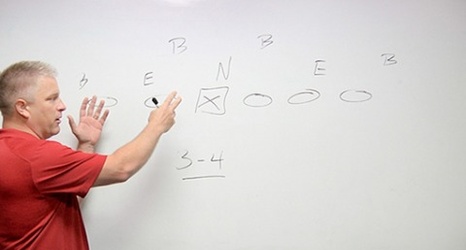 B B
B E N E B
3-4